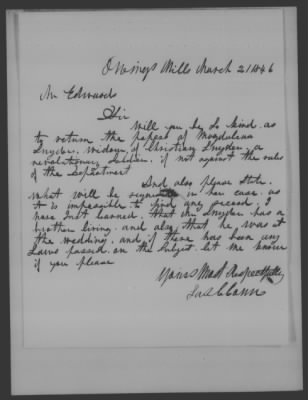 Owings Mills March 2/1846
Mr Edwards
Sir
Will you be so kind as
to return the papers of Magdalena
Snyder. widow of Christian Snyder. a
revolutionary Soldier. if not against the rules
of the Department
And also please state.
what will be in her case. as
it is impossible to find any record. I
have Just learned. that Mr Snyder has a
brother living. and also that he was at
the wedding. and if there has been any
Laws passed. on the subject let me know
if you please
Yours Most Respectfully